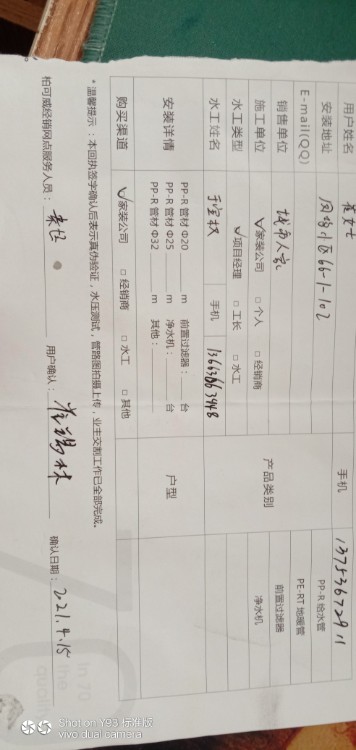 用户姓名 手机 13753672911
安装地址 凤鸣小区66-1-102
E-mail(QQ) 产品类别 PP-R 给水管
销售单位 城市人家 PE-RT 地暖管
施工单位 ✓家装公司 □ 个人 □ 经销商 前置过滤器
水工类型 ✓项目经理 □ 工长 □ 水工 净水机
水工姓名 手机 13663663948
安装详情 PP-R 管材 Φ20 m 前置过滤器: 台 户型
PP-R 管材 Φ25 m 净水机: 台
PP-R 管材 Φ32 m 其他:
购买渠道 ✓家装公司 □ 经销商 □ 水工 □ 其他
* 温馨提示:本回执签字确认后表示真伪验证,水压测试,管路图拍摄上传,业主交割工作已全部完成。
柏可威经销网点服务人员: 用户确认: 确认日期: 2021.4.15
Shot on Y93 标准版
vivo dual camera